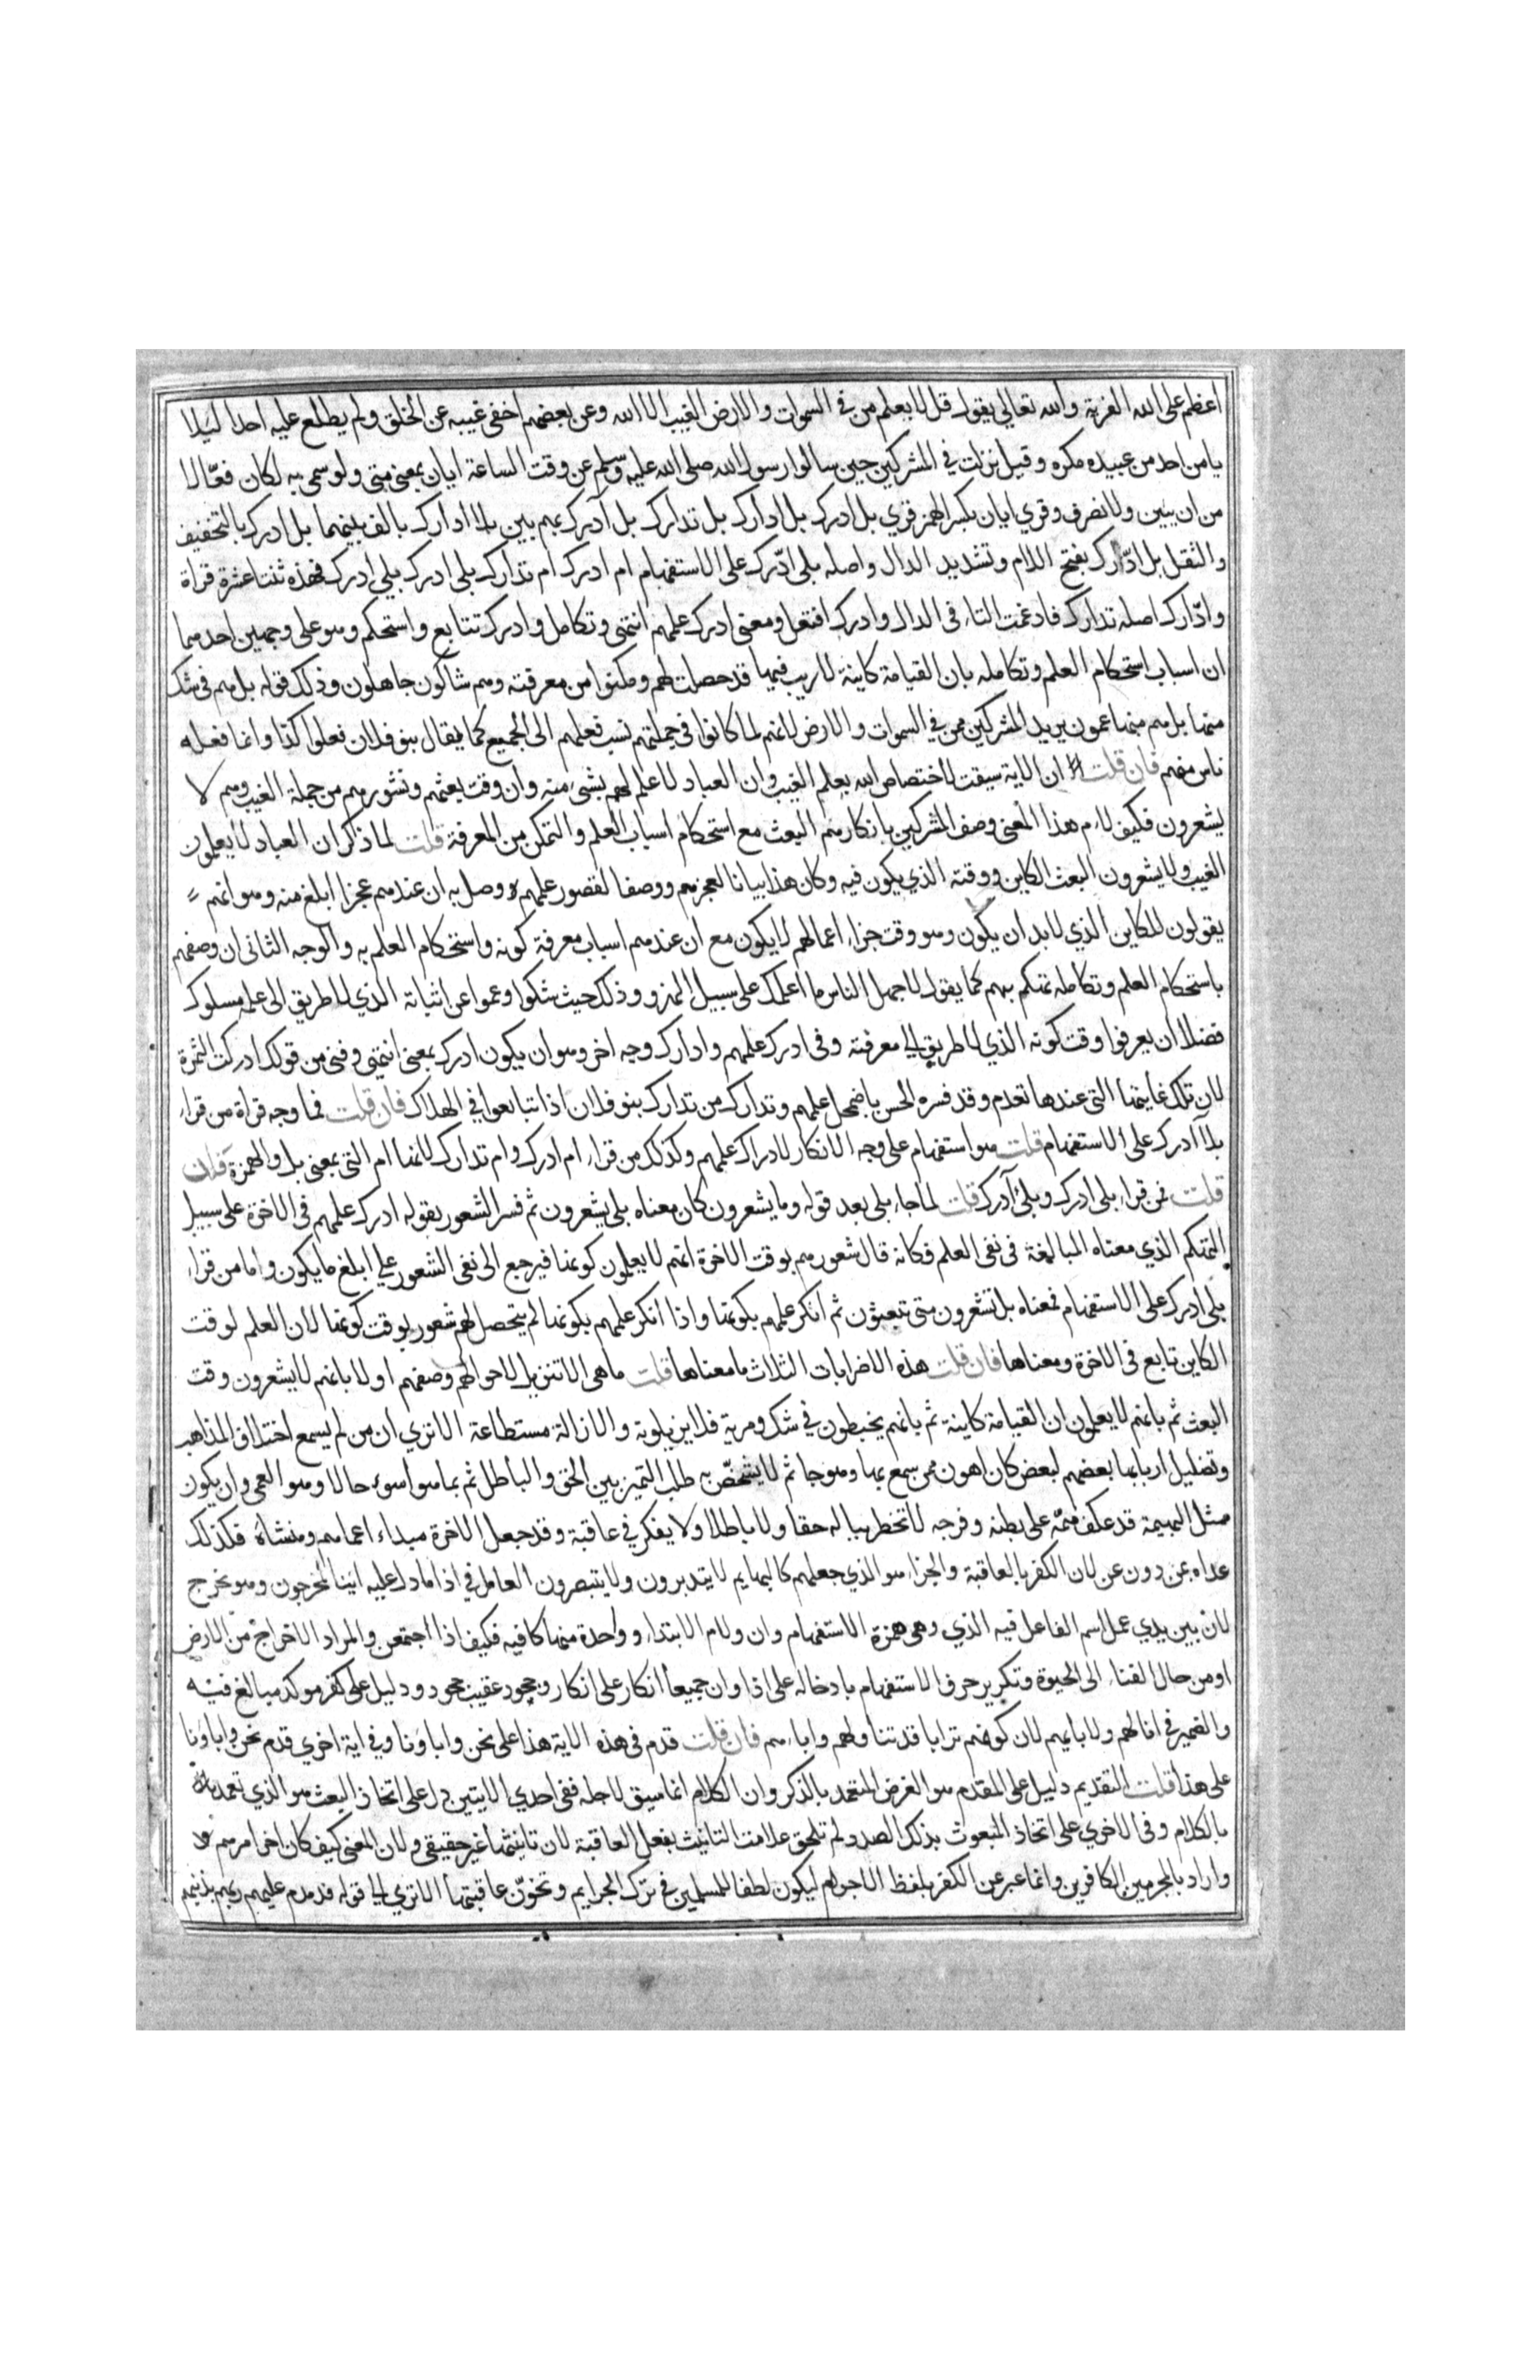 اعظم على الله الفرية والله تعالى يقول قل لا يعلم من في السموات والارض الغيب الا الله وعن بعضهم اخفى غيبه عن الخلق ولم يطلع عليه احدا ليلا
يامن احد من عبيده مكره وقيل نزلت في المشركين حين سالوا رسول الله صلى الله عليه وسلم عن وقت الساعة ايان بمعنى متى ولو سمى به لكان فعّالا
من ان يئين ولانصرف وقري ايان بكسر الهمز قري بل ادرك بل ادارك بل تدارك بل آدرك بهمزتين بلا ادارك بالف بينهما بل ادرك بالتخفيف
والثقل بل ادّارك بفتح اللام وتشديد الدال واصله بلى ادّرك على الاستفهام ام ادرك ام تدارك بلى ادرك بلى ادرك فهذه ثنتا عشرة قراة
وادّارك اصله تدارك فادغمت التاء في الدال وادرك افتعل ومعنى ادرك علمهم انتهى وتكامل وادرك تتابع واستحكم وهو على وجهين احدهما
ان اسباب استحكام العلم وتكامله بان القيامة كاينة لا ريب فيها قد حصلت لهم ومكنوا من معرفته وهم شاكون جاهلون وذلك قوله بل هم في شك
منها بل هم منها عمون يريد المشركين ممن في السموات والارض لانهم لما كانوا في جملتهم نسب فعلهم الى الجميع كما يقال بنو فلان فعلوا كذا وانما فعله
ناس منهم فان قلت ان الاية سيقت لاختصاص الله بعلم الغيب وان العباد لا علم لهم بشيء منه وان وقت بعثهم ونشورهم من جملة الغيب وهم لا
يشعرون فكيف لاءم هذا المعنى وصف المشركين بانكارهم البعث مع استحكام اسباب العلم والتمكن من المعرفة قلت لما ذكر ان العباد لا يعلمون
الغيب ولا يشعرون البعث الكاين ووقته الذي يكون فيه وكان هذا بيانا لعجزهم ووصفا لقصور علمهم وصل به ان عندهم عجزا ابلغ منه وهو انهم
يقولون للكاين الذي لابد ان يكون وهو وقت جزاء اعمالهم لا يكون مع ان عندهم اسباب معرفة كونه واستحكام العلم به والوجه الثاني ان وصفهم
باستحكام العلم وتكامله تهكم بهم كما يقول لاجهل الناس ما اعلمك على سبيل الهزو وذلك حيث شكوا وعموا عن اثباته الذي لا طريق الى علمه مسلوك
فضلا ان يعرفوا وقت كونه الذي لا طريق الى معرفته وفي ادرك علمهم وادارك وجه اخر وهو ان يكون ادرك بمعنى انتهى وفنى من قولك ادركت الثمرة
لان تلك غايتها التي عندها تعدم وقد فسره الحسن باضمحل علمهم وتدارك من تدارك بنو فلان اذا تتابعوا في الهلاك فان قلت فما وجه قراة من قراء
بلا آدرك على الاستفهام قلت هو استفهام على وجه الانكار لادراك علمهم وكذلك من قراء ام ادرك وام تدارك لانها ام التي بمعنى بل والهمزة فان
قلت فمن قراء بلى ادرك وبلى آدرك قلت لما جاء بلى بعد قوله وما يشعرون كان معناه بلى يشعرون ثم فسر الشعور بقوله ادرك علمهم في الاخرة على سبيل
التهكم الذي معناه المبالغة في نفى العلم فكانه قال شعورهم بوقت الاخرة انهم لا يعلمون كونها فيرجع الى نفى الشعور على ابلغ ما يكون واما من قراء
بلى آدرك على الاستفهام فمعناه بل تشعرون متى تبعثون ثم انكر علمهم بكونها واذا انكر علمهم بكونها لم يتحصل لهم شعور بوقت كونها لان العلم لوقت
الكاين تابع في الاخرة ومعناها فان قلت هذه الاضرابات الثلاث ما معناها قلت ما هي الا تنزيل لاحوالهم وصفهم اولا بانهم لا يشعرون وقت
البعث ثم بانهم لا يعلمون ان القيامة كاينة ثم بانهم يخبطون في شك ومرية فلا يزيلونه والازالة مستطاعة الا ترى ان من لم يسمع اختلاف المذاهب
وتضليل اربابها بعضهم لبعض كان اهون ممن سمع بها وهو جاثم لا يشخصّ به طلب التميز بين الحق والباطل ثم بما هو اسوء حالا وهو العمى وان يكون
مثل البهيمة قد عكف همّه على بطنه وفرجه لا تخطر بباله حقا ولا باطلا ولا يفكر في عاقبة وقد جعل الاخرة مبداء اعماهم ومنشاه فلذلك
عداه بمن دون عن لان الكفر بالعاقبة والجزاء هو الذي جعلهم كالبهايم لا يتدبرون ولا يتبصرون العامل في اذا ما دل عليه اينا لمخرجون وهو نخرج
لان بين يدي عمل اسم الفاعل فيه الذي وهي همزة الاستفهام وان ولام الابتداء وواحدة منها كافيه فكيف اذا اجتمعن والمراد الاخراج من الارض
او من حال الفناء الى الحيوة وتكرير حرف الاستفهام بادخاله على اذا وان جميعا انكار على انكار وجحود عقيب جحود ودليل على كفر موكد مبالغ فيه
والضمير في انا لهم ولابايهم لان كونهم ترابا قد تناولهم واباءهم فان قلت قدم في هذه الاية هذا على نحن واباونا وفي اية اخرى قدم نحن واباونا
على هذا قلت التقديم دليل على المقدم هو الغرض المتعمد بالذكر وان الكلام انما سيق لاجله ففى احدي الايتين دل على اتخاذ البعث هو الذي تعمد
بالكلام وفي الاخري على اتخاذ المبعوث بذلك الصدد لم تلحق علامت التانيث بفعل العاقبة لان تانيثها غير حقيقي ولان المعنى كيف كان اخر امرهم
واراد بالمجرمين الكافرين وانما عبر عن الكفر بلفظ الاجرام ليكون لطفا للمسلمين في ترك الجرايم وتخوّف عاقبتها الا ترى الى قوله فدمدم عليهم ربهم بذنبهم